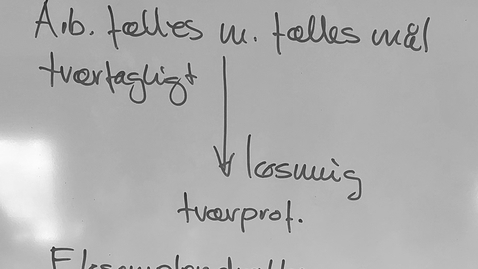 A.b. fælles m. fælles mål
tværfagligt
løsning
tværprof.